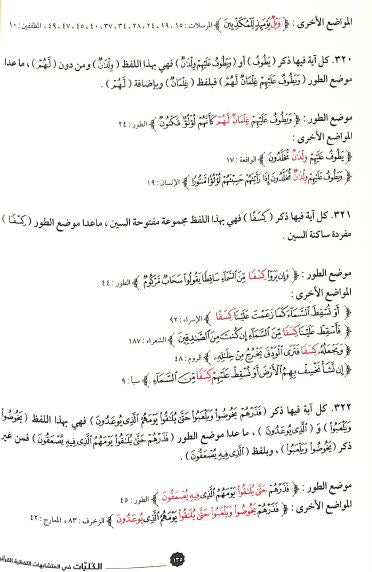 المواضع الأخرى : ﴿ وَيْلٌ يَوْمَئِذٍ لِّلْمُكَذِّبِينَ ﴾ المرسلات : ١٥ ، ١٩ ، ٢٤ ، ٢٨ ، ٣٤ ، ٣٧ ، ٤٠ ، ٤٥ ، ٤٧ ، ٤٩ ، المطففين : ١٠
٣٢٠. كل آية فيها ذكر ( يَطُوفُ ) أو ( وَيَطُوفُ عَلَيْهِمْ ) فهي بهذا اللفظ ( وِلْدَٰنٌ ) ومن دون ( لَّهُمْ ) ، ما عدا
موضع الطور ( وَيَطُوفُ عَلَيْهِمْ غِلْمَانٌ ) فبلفظ ( غِلْمَانٌ ) وبإضافة ( لَّهُمْ ) .
موضع الطور : ﴿ وَيَطُوفُ عَلَيْهِمْ غِلْمَانٌ لَّهُمْ كَأَنَّهُمْ لُؤْلُؤٌ مَّكْنُونٌ ﴾ الطور : ٢٤
المواضع الأخرى :
﴿ يَطُوفُ عَلَيْهِمْ وِلْدَٰنٌ مُّخَلَّدُونَ ﴾ الواقعة : ١٧
﴿ وَيَطُوفُ عَلَيْهِمْ وِلْدَٰنٌ مُّخَلَّدُونَ إِذَا رَأَيْتَهُمْ حَسِبْتَهُمْ لُؤْلُؤًا مَّنثُورًا ﴾ الإنسان : ١٩
٣٢١. كل آية فيها ذكر ( كِسَفًا ) فهي بهذا اللفظ مجموعة مفتوحة السين ، ماعدا موضع الطور ( كِسْفًا )
مفردة ساكنة السين .
موضع الطور : ﴿ وَإِن يَرَوْا كِسْفًا مِّنَ السَّمَاءِ سَاقِطًا يَقُولُوا سَحَابٌ مَّرْكُومٌ ﴾ الطور : ٤٤
المواضع الأخرى :
﴿ أَوْ تُسْقِطَ السَّمَاءَ كَمَا زَعَمْتَ عَلَيْنَا كِسَفًا ﴾ الإسراء : ٩٢
﴿ فَأَسْقِطْ عَلَيْنَا كِسَفًا مِّنَ السَّمَاءِ إِن كُنتَ مِنَ الصَّٰدِقِينَ ﴾ الشعراء : ١٨٧
﴿ وَيَجْعَلُهُ كِسَفًا فَتَرَى الْوَدْقَ يَخْرُجُ مِنْ خِلَٰلِهِ ﴾ الروم : ٤٨
﴿ إِن نَّشَأْ نَخْسِفْ بِهِمُ الْأَرْضَ أَوْ نُسْقِطْ عَلَيْهِمْ كِسَفًا مِّنَ السَّمَاءِ ﴾ سبأ : ٩
٣٢٢. كل آية فيها ذكر ( فَذَرْهُمْ يَخُوضُوا وَيَلْعَبُوا حَتَّىٰ يُلَٰقُوا يَوْمَهُمُ الَّذِي يُوعَدُونَ ) فهي بهذا اللفظ ( يَخُوضُوا
وَيَلْعَبُوا ) وَ ( الَّذِي يُوعَدُونَ ) ، ما عدا موضع الطور ( فَذَرْهُمْ حَتَّىٰ يُلَٰقُوا يَوْمَهُمُ الَّذِي فِيهِ يُصْعَقُونَ ) فمن غير
ذكر ( يَخُوضُوا وَيَلْعَبُوا ) ، وبلفظ ( الَّذِي فِيهِ يُصْعَقُونَ ) .
موضع الطور : ﴿ فَذَرْهُمْ حَتَّىٰ يُلَٰقُوا يَوْمَهُمُ الَّذِي فِيهِ يُصْعَقُونَ ﴾ الطور : ٤٥
المواضع الأخرى : ﴿ فَذَرْهُمْ يَخُوضُوا وَيَلْعَبُوا حَتَّىٰ يُلَٰقُوا يَوْمَهُمُ الَّذِي يُوعَدُونَ ﴾ الزخرف : ٨٣ ، المعارج : ٤٢
١٣٥
الكليّات في المتشابهات اللفظية